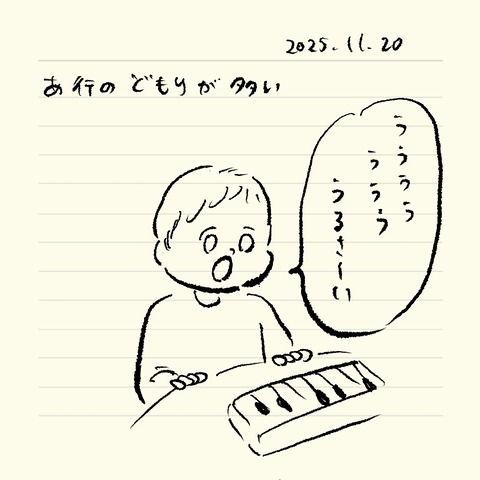 2025.11.20
あ行の どもりが 多い
うううう
ううう
うるさーい